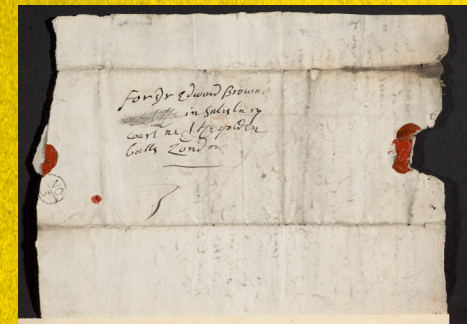 For Dr Edward Browne
in Salisbury
court next the golden
balls London
NO
3